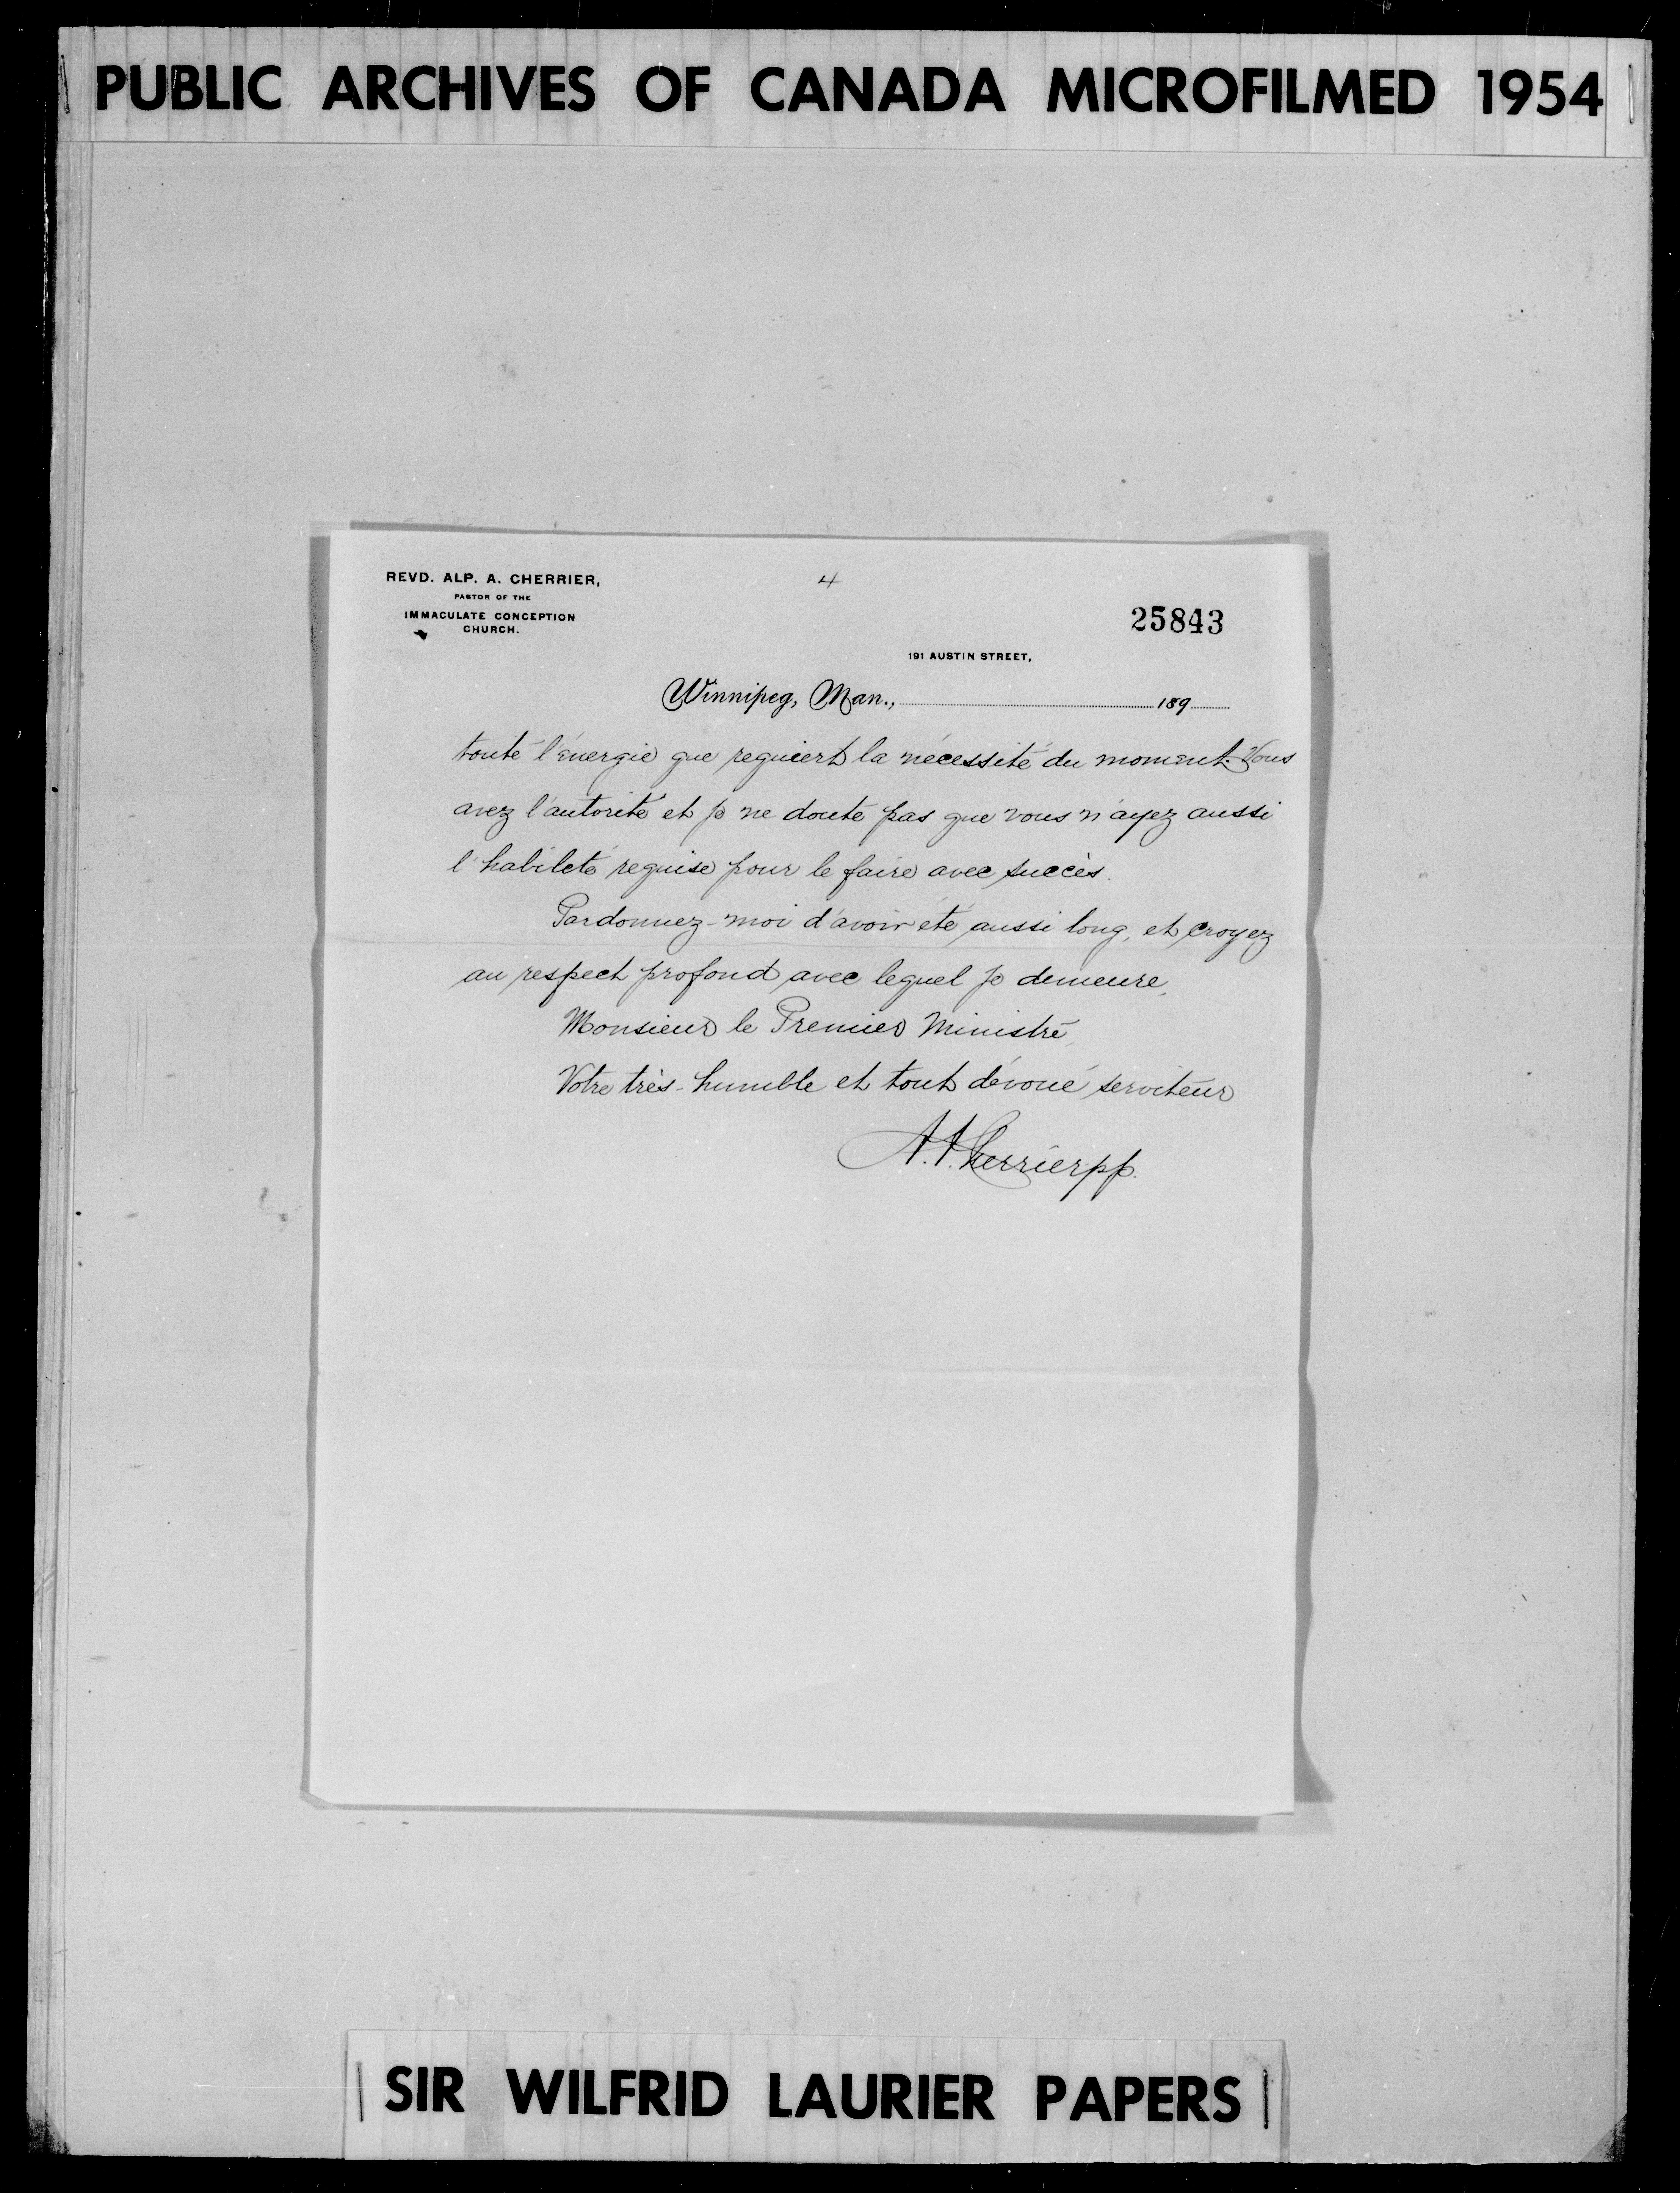 PUBLIC ARCHIVES OF CANADA MICROFILMED 1954
REVD. ALP. A. CHERRIER,
PASTOR OF THE
IMMACULATE CONCEPTION
CHURCH.
4
25843
191 AUSTIN STREET,
Winnipeg, Man., 189
toute l'énergie que requiert la nécessité du moment. Vous
avez l'autorité et je ne doute pas que vous n'ayez aussi
l'habileté requise pour le faire avec succès.
Pardonnez-moi d'avoir été aussi long, et croyez
au respect profond avec lequel je demeure,
Monsieur le Premier Ministre,
Votre très-humble et tout dévoué serviteur
A. A. Cherrier pp.
SIR WILFRID LAURIER PAPERS